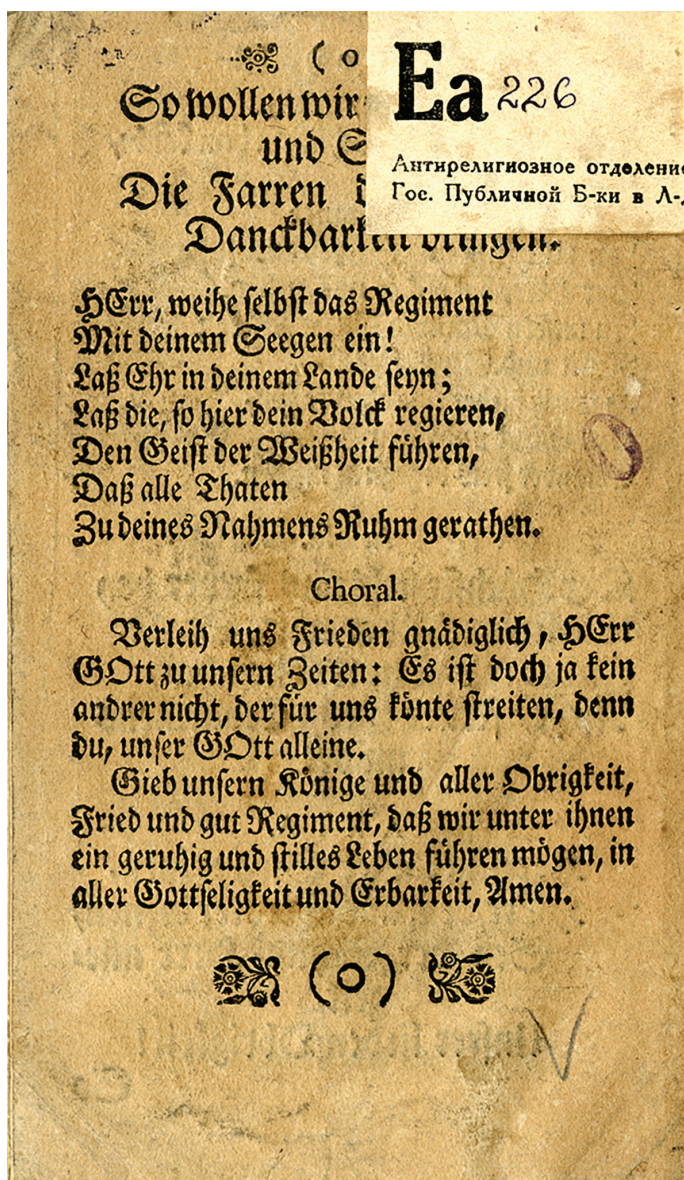 ( o
So wollen wir
und
Die Farren
Danckbarkeit bringen.
Ea 226
Антирелигиозное отделение
Гос. Публичной Б-ки в Л-
HErr, weihe selbst das Regiment
Mit deinem Seegen ein!
Laß Ehr in deinem Lande seyn;
Laß die, so hier dein Volck regieren,
Den Geist der Weißheit führen,
Daß alle Thaten
Zu deines Nahmens Ruhm gerathen.
Choral.
Verleih uns Frieden gnädiglich, HErr
GOtt zu unsern Zeiten: Es ist doch ja kein
andrer nicht, der für uns könte streiten, denn
du, unser GOtt alleine.
Gieb unsern Könige und aller Obrigkeit,
Fried und gut Regiment, daß wir unter ihnen
ein geruhig und stilles Leben führen mögen, in
aller Gottseligkeit und Erbarkeit, Amen.
(o)